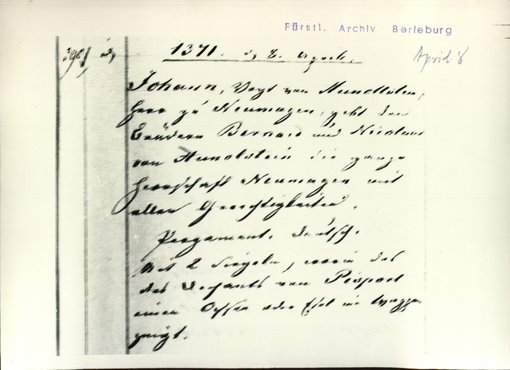 Fürstl. Archiv Berleburg
April 8
1371. d. 8. April.
Johann, Vogt von Hunolstein,
Herr zu Neumagen, gibt den
Brüdern Bernard und Nicolaus
von Hunolstein die ganze
Herrschaft Neumagen mit
allen Gerechtigkeiten.
Pergament. deutsch.
Mit 2 Siegeln, worin das
des von Piesport
einen Ochsen oder Esel im Wappen
zeigt.